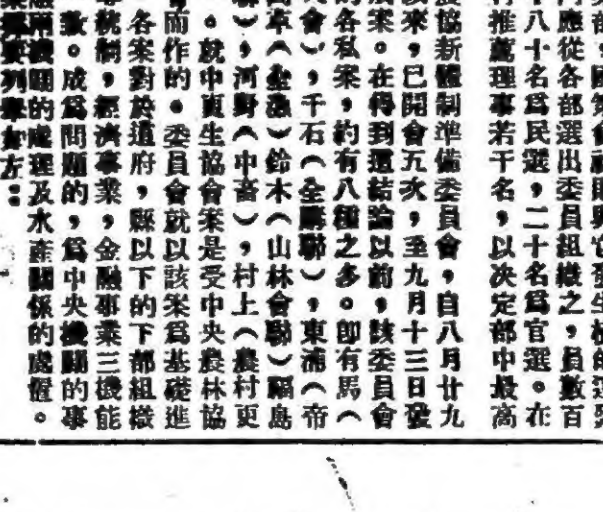 應從各部選出委員組織之，員數百
八十名爲民選，二十名爲官選。在
推薦理事若干名，以决定部中最高
協新體制準備委員會，自八月廿九
來，已開會五次，至九月十三日發
案。在得到還結論以前，該委員會
的各私案，約有八種之多。卽有馬（
會），千石（全購聯），東浦（帝
（全漁）鈴木（山林會聯）福島
），河野（中畜），村上（農村更
。就中更生協會案是受中央農林協
而作的。委員會就以該案爲基礎進
各案對於道府，縣以下的下部組織
統制，經濟事業，金融事業三機能
致。成爲問題的，爲中央機關的事
兩機關的處理及水產關係的處置。
列舉如左：